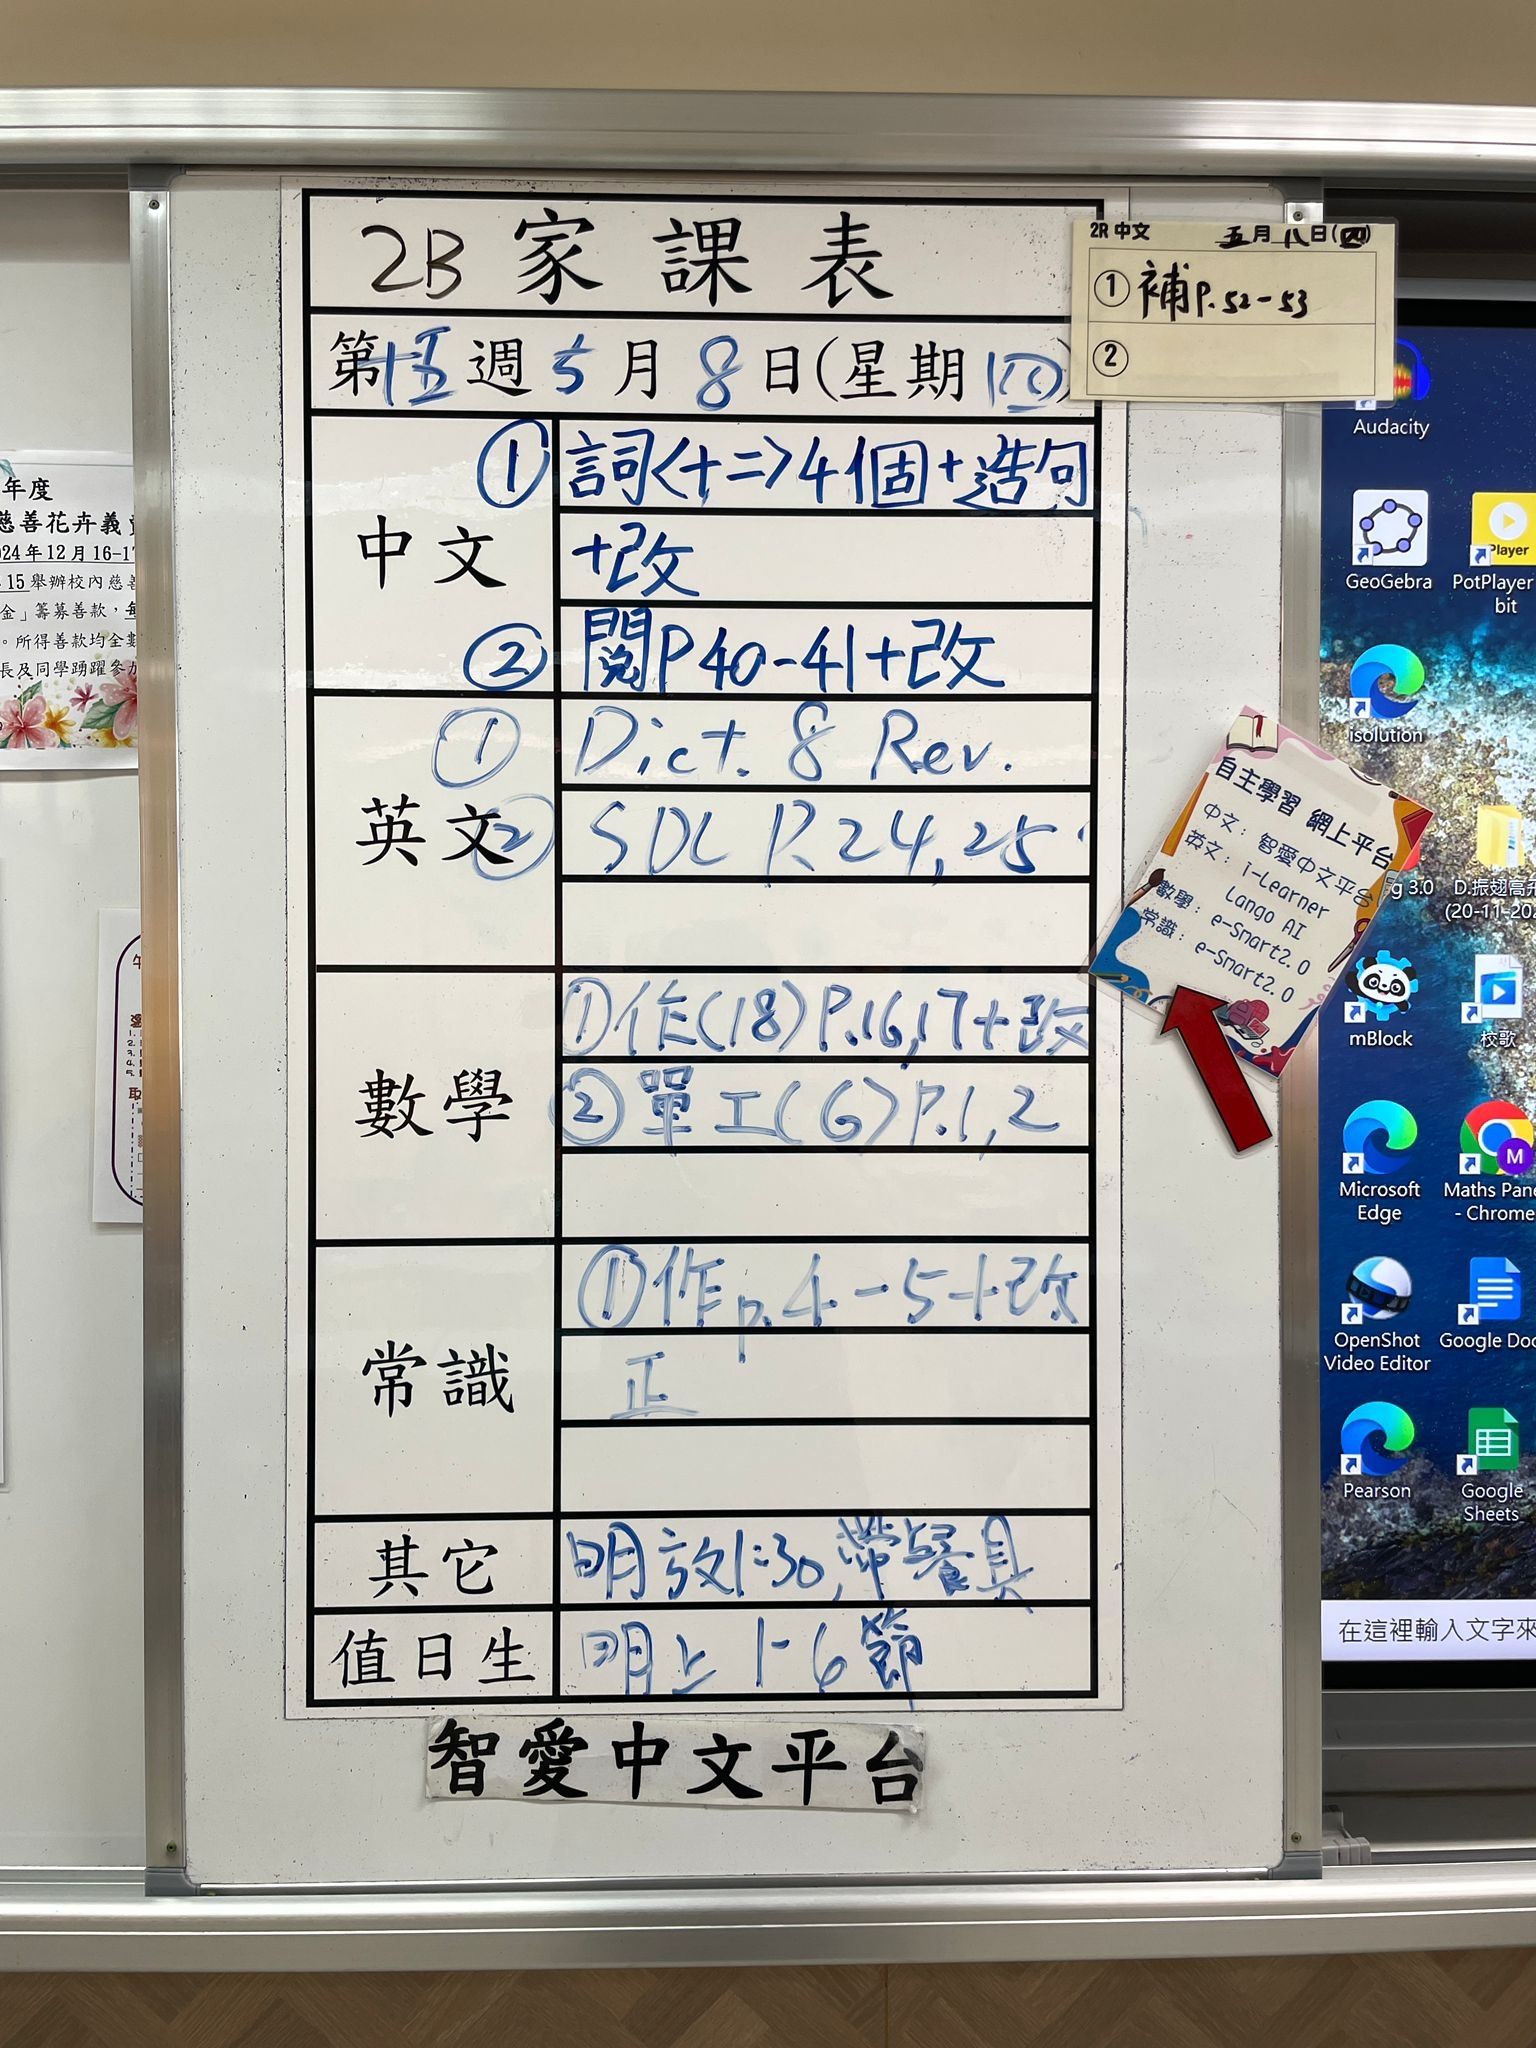 2B 家課表
第十五週 5月8日(星期四)
中文
① 詞<十二>4個+造句
+改
② 閱P40-41+改
英文
① Dict. 8 Rev.
② SDL P.24,25
數學
①作(18)P.16,17+改
②單工(6)P.1,2
常識
①作p.4-5+改
正
其它
明放1:30,帶餐具
值日生
明上1-6節
智愛中文平台
2R 中文 五月八日(四)
① 補P.52-53
②
自主學習 網上平台
中文：智愛中文平台
英文：i-Learner
Lango AI
數學：e-Smart2.0
常識：e-Smart2.0
年度
慈善花卉義
24年12月16-17
15舉辦校內慈善
金」籌募善款，
。所得善款均全
長及同學踴躍參加
取
Audacity
GeoGebra
PotPlayer
bit
isolution
g 3.0
D.振翅高
(20-11-20
mBlock
校歌
Microsoft
Edge
Maths Pane
- Chrome
M
OpenShot
Video Editor
Google Doc
Pearson
Google
Sheets
在這裡輸入文字來